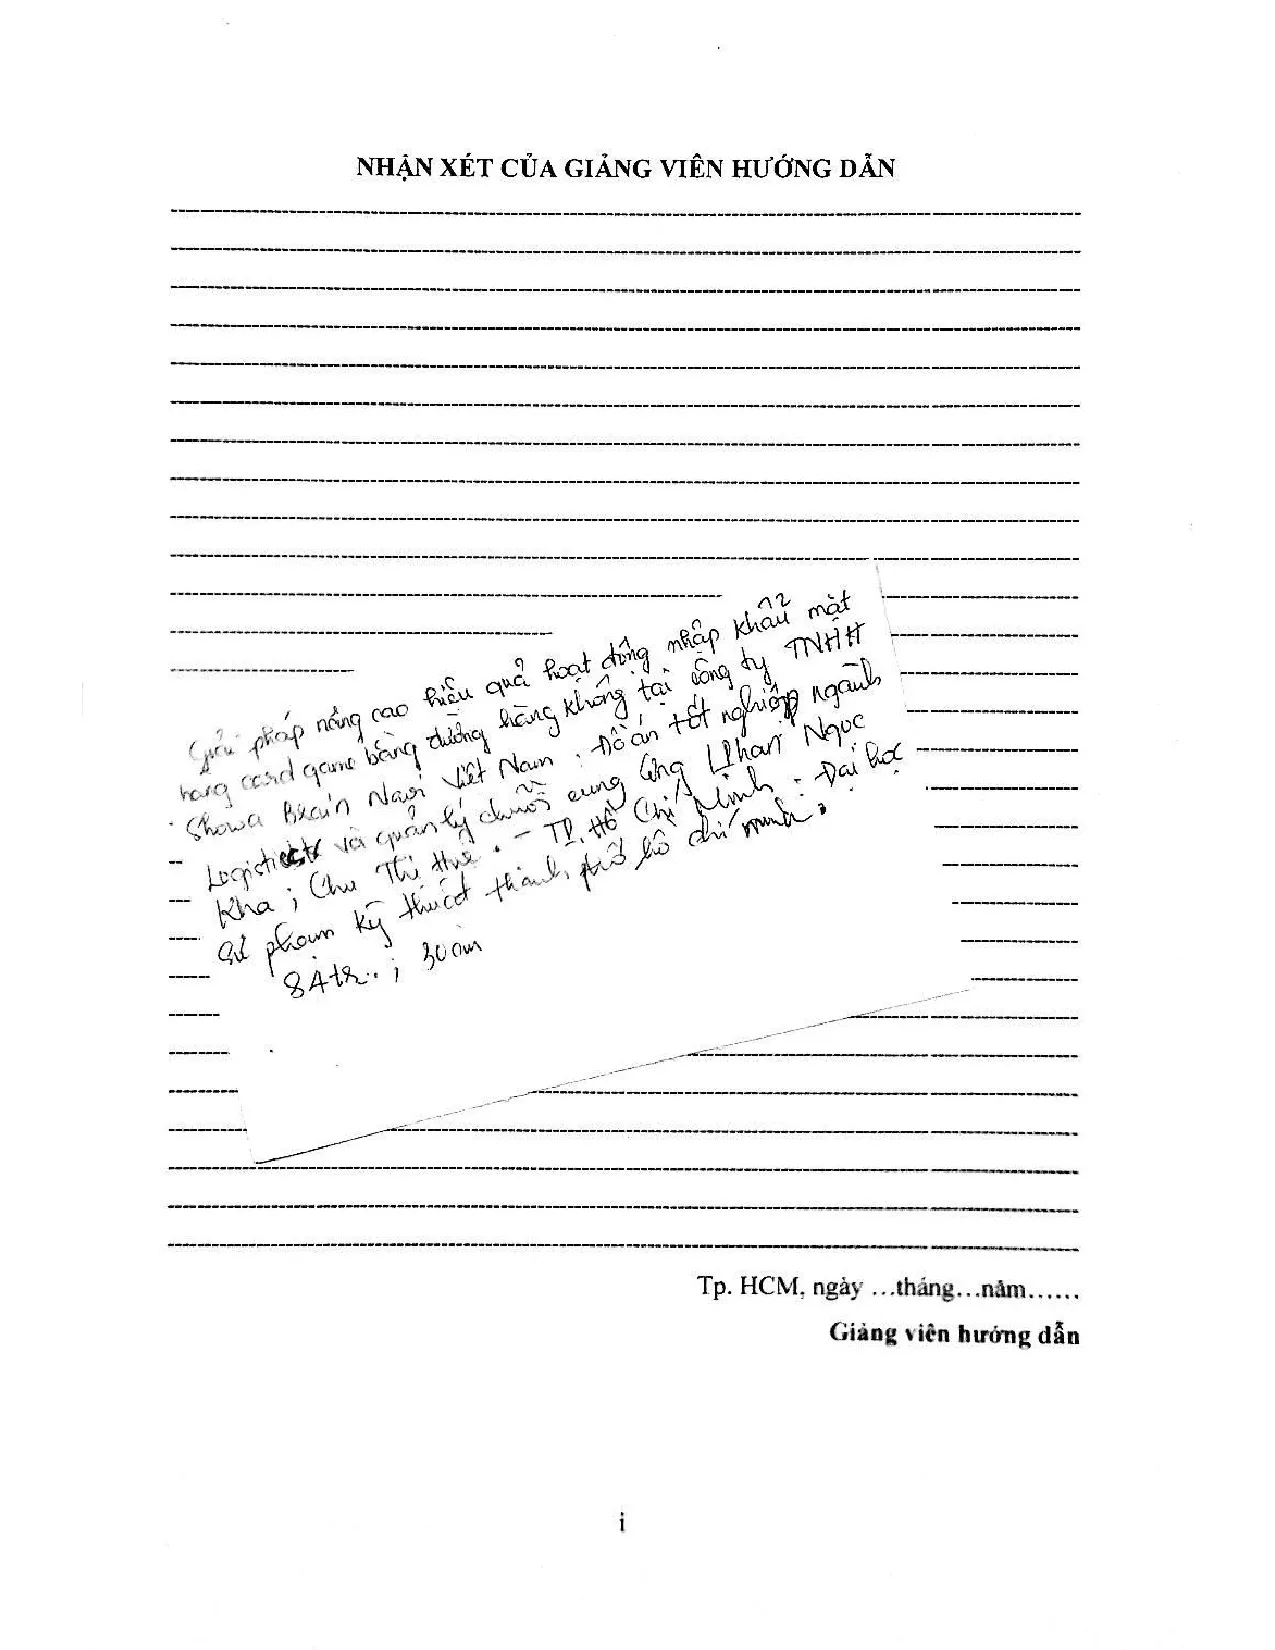 NHẬN XÉT CỦA GIẢNG VIÊN HƯỚNG DẪN
Giải pháp nâng cao hiệu quả hoạt động nhập khẩu mặt
hàng card game bằng đường hàng không tại công ty TNHH
Showa Brain Navi Việt Nam : Đồ án tốt nghiệp ngành
Logistics và quản lý chuỗi cung ứng Phan Ngọc
Kha ; Chu Thị Huệ . - TP. Hồ Chí Minh : Đại học
Sư phạm kỹ thuật thành phố hồ chí minh.
84tr.. ; 30cm
Tp. HCM, ngày ...tháng...năm......
Giảng viên hướng dẫn
i